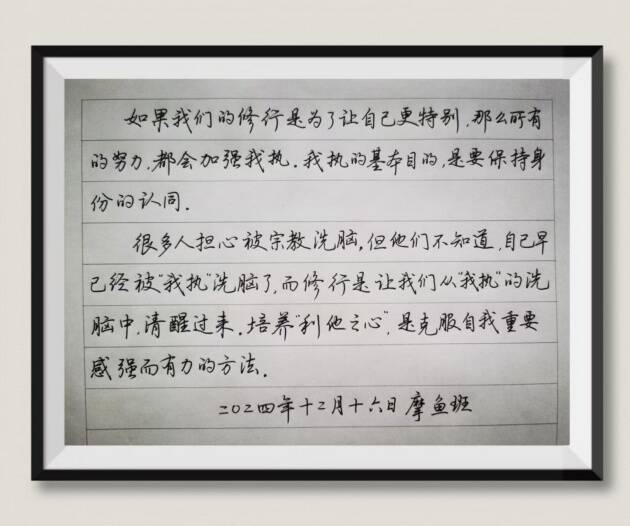 如果我们的修行是为了让自己更特别,那么所有
的努力,都会加强我执.我执的基本目的,是要保持身
份的认同.
很多人担心被宗教洗脑,但他们不知道,自己早
已经被"我执"洗脑了,而修行是让我们从"我执"的洗
脑中,清醒过来.培养"利他之心",是克服自我重要
感强而有力的方法.
二〇二四年十二月十六日摩鱼班